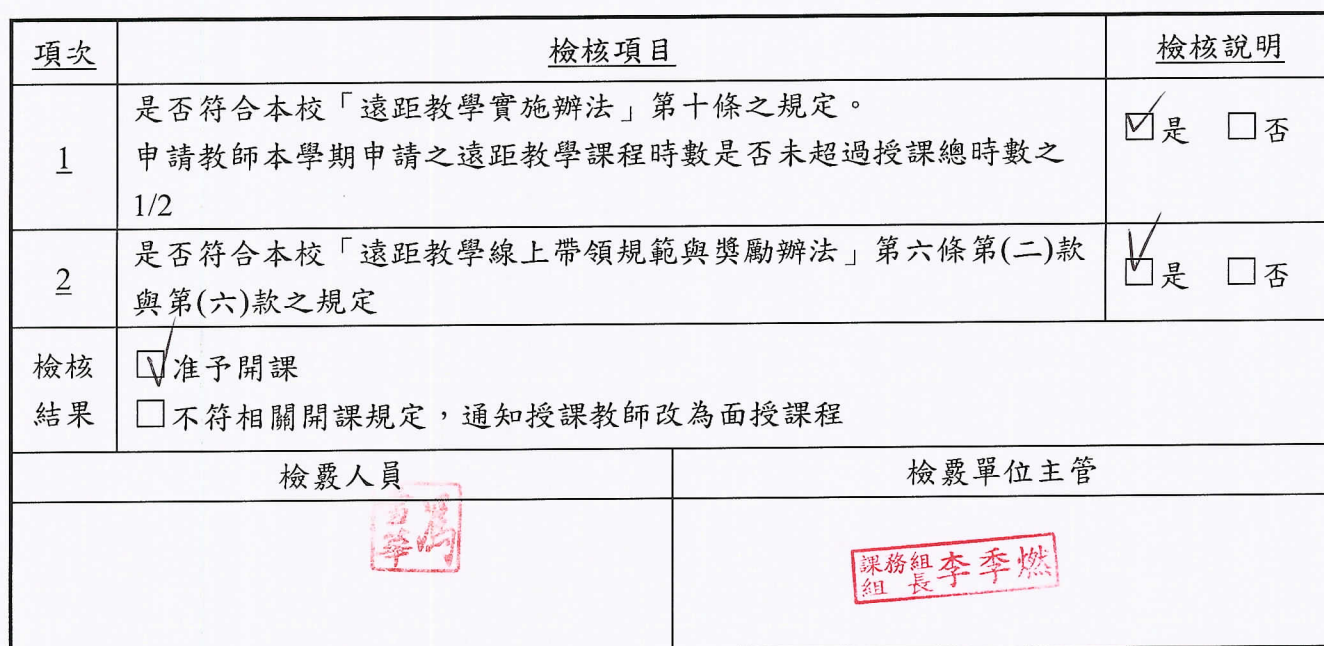 項次 檢核項目 檢核說明
1 是否符合本校「遠距教學實施辦法」第十條之規定。
申請教師本學期申請之遠距教學課程時數是否未超過授課總時數之
1/2
☑是 □否
2 是否符合本校「遠距教學線上帶領規範與獎勵辦法」第六條第(二)款
與第(六)款之規定
☑是 □否
檢核
結果
☑准予開課
□不符相關開課規定，通知授課教師改為面授課程
檢覈人員 檢覈單位主管
課務組
組長
李季燃